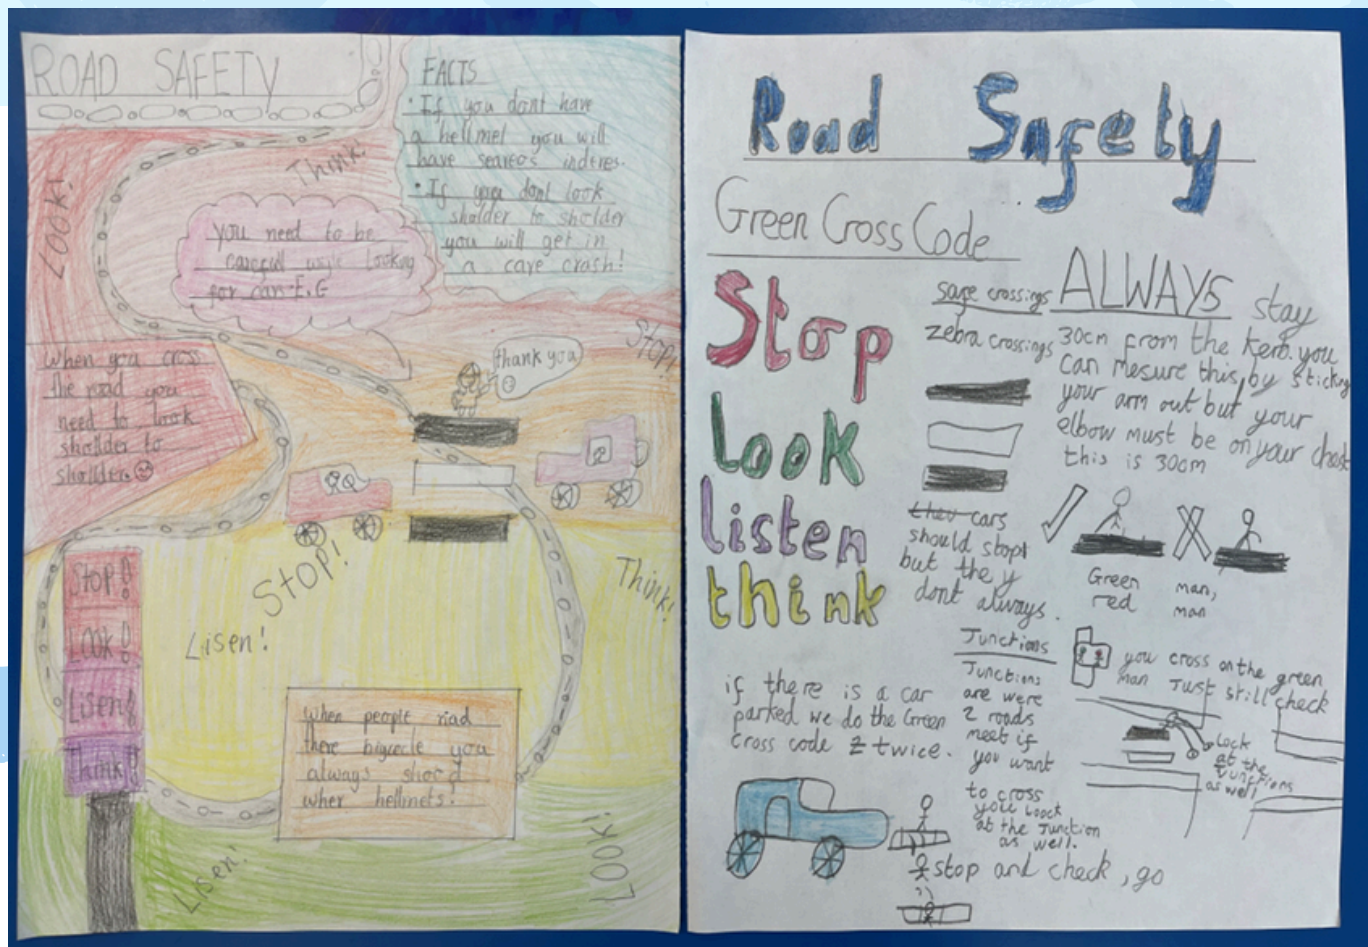 ROAD SAFETY
FACTS
• If you dont have
a hellmet you will
have seareos inderes.
• If you dont look
sholder to sholder
you will get in
a care crash!
Think!
LOOK!
you need to be
carefull wyle looking
for car. E.G
Stop!
thank you
when you cross
the road you
need to look
sholder to
sholder.
STOP!
LOOK!
Lisen!
Think!
STOP!
Lisen!
Think!
When people riad
there bigcecle you
always shord
wher hellmets!
Lisen!
LOOK!
Road Safety
Green Cross Code
Stop
Look
listen
think
safe crossings
zebra crossings
cars
should stop
but they
dont always.
ALWAYS stay
30cm from the kerb. you
can mesure this, by sticking
your arm out but your
elbow must be on your chest
this is 30cm
Green man,
red man
you cross on the green
man Just still check
Junctions
Junctions
are were
2 roads
meet if
you want
to cross
you loock
at the Junction
as well.
Lock
at the
Junctions
as well
if there is a car
parked we do the Green
cross code twice.
stop and check, go